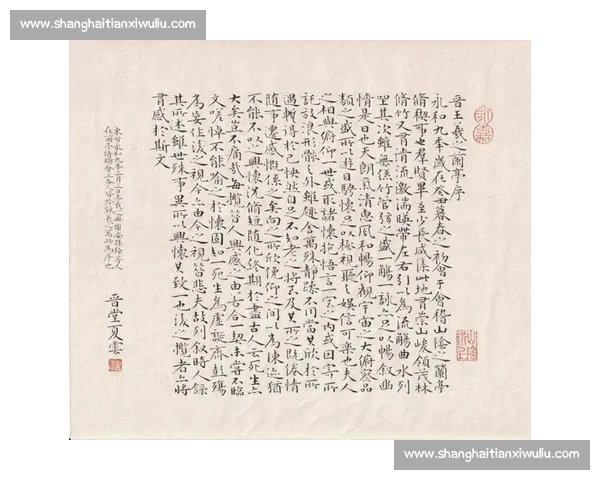 www.shanghaitianxiwuliu.com
晋王羲之蘭亭序
永和九年歲在癸丑暮春之初會于會稽山陰之蘭亭
脩稧事也羣賢畢至少長咸集此地有崇山峻領茂林
脩竹又有清流激湍暎帶左右引以為流觴曲水列
坐其次雖無絲竹管弦之盛一觴一詠亦足以暢叙幽
情是日也天朗氣清惠風和暢仰觀宇宙之大俯察品
類之盛所以遊目騁懷足以極視聽之娛信可樂也夫人
之相與俯仰一世或取諸懷抱悟言一室之内或因寄所
託放浪形骸之外雖趣舍萬殊静躁不同當其欣於所
遇輙得於己怏然自足不知老之將至及其所之既倦情
隨事遷感慨係之矣向之所欣俛仰之間以為陳迹猶
不能不以之興懷況脩短隨化終期於盡古人云死生亦
大矣豈不痛哉每攬昔人興感之由若合一契未嘗不臨
文嗟悼不能喻之於懷固知一死生為虛誕齊彭殤
為妄作後之視今亦由今之視昔悲夫故列叙時人録
其所述雖世殊事異所以興懷其致一也後之攬者亦將
有感於斯文
東晋永和九年三月三日王羲之與謝安孫綽等人
晋堂夏雲
www.shanghaitianxiwuliu.com